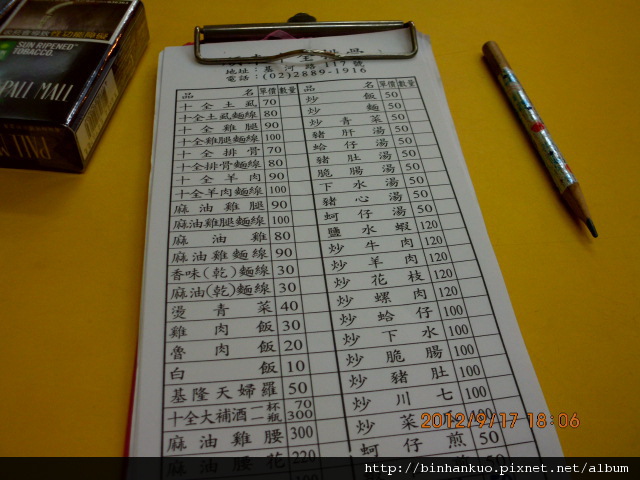 SUN RIPENED
TOBACCO
PALL MALL
PALL
地址：基河路117號
電話：(02)2889-1916
品名 單價 數量
十全土虱 70
十全土虱麵線 80
十全雞腿 90
十全雞腿麵線 100
十全排骨 70
十全排骨麵線 80
十全羊肉 90
十全羊肉麵線 100
麻油雞腿 90
麻油雞腿麵線 100
麻油雞 80
麻油雞麵線 90
香味(乾)麵線 30
麻油(乾)麵線 30
燙青菜 40
雞肉飯 30
魯肉飯 20
白飯 10
基隆天婦羅 50
十全大補酒 一杯 70
瓶 300
麻油雞腰 300
麻油腰花 220
品名 單價 數量
炒飯 50
炒麵 50
炒青菜 50
豬肝湯 50
蛤仔湯 50
豬肚湯 50
脆腸湯 50
下水湯 50
豬心湯 50
蚵仔湯 50
鹽水蝦 120
炒牛肉 120
炒羊肉 120
炒花枝 120
炒螺肉 120
炒蛤仔 100
炒下水 100
炒脆腸 100
炒豬肚 100
炒川七 100
炒菜 100
蚵仔煎 50
2012/9/17 18:06
http://binhankuo.pixnet.net/album